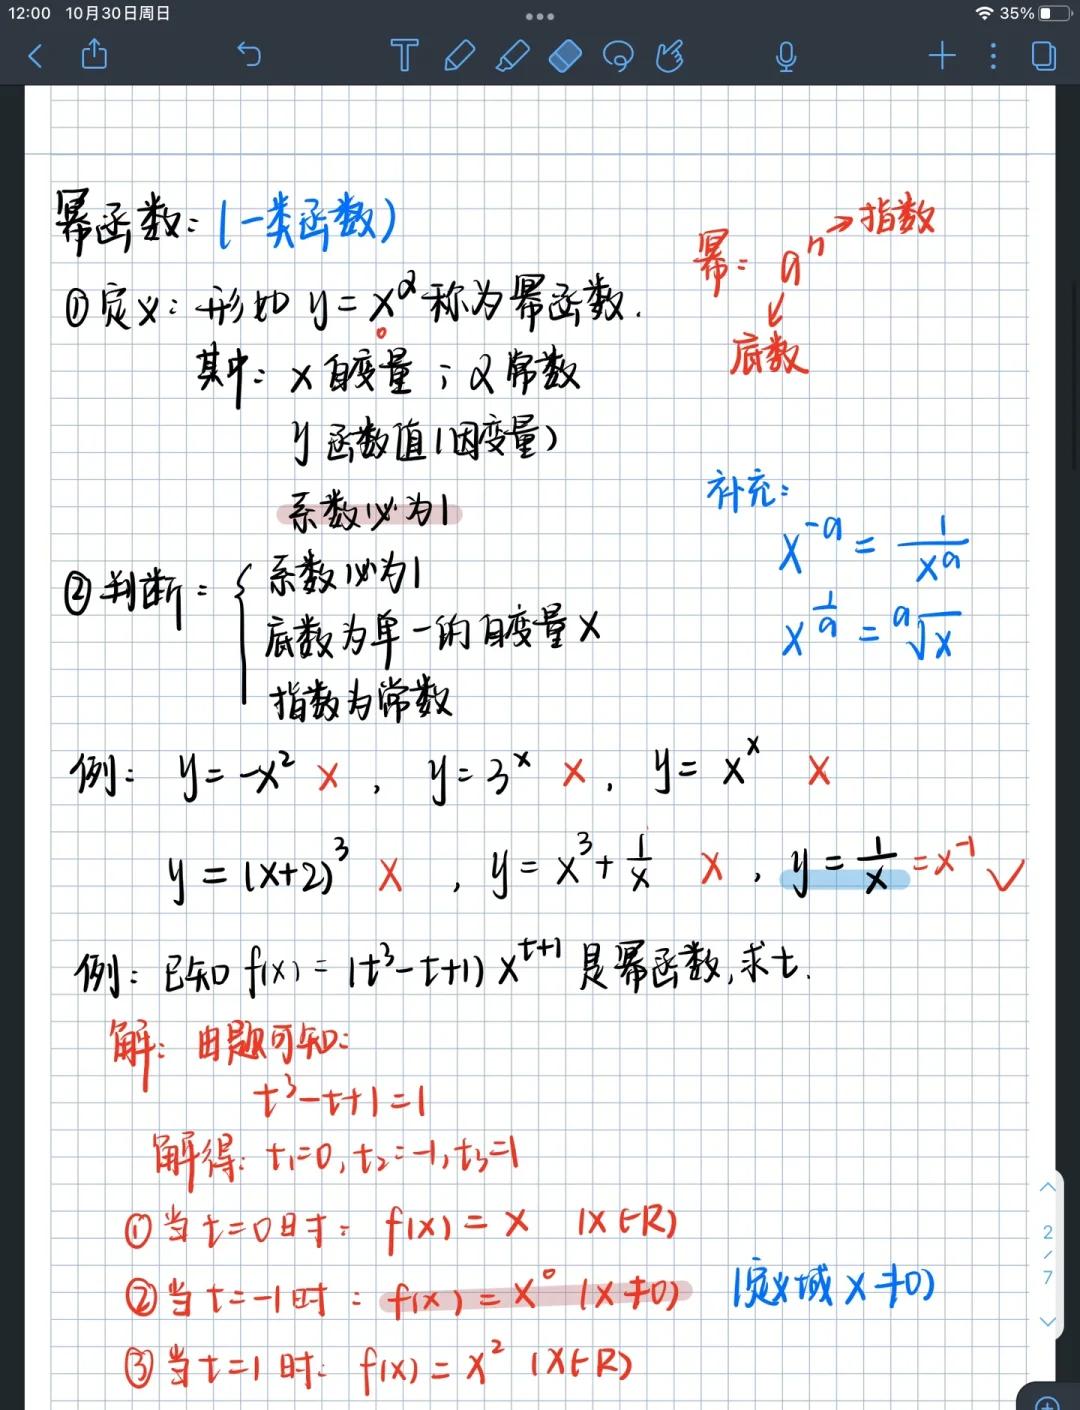 12:00 10月30日周日
35%
幂函数：(一类函数)
幂：aⁿ→指数
底数
①定义：形如 y=x^α 称为幂函数.
其中：x 自变量；α 常数
y 函数值(因变量)
系数必为1
补充：
x^-a = 1/x^a
x^(1/a) = ᵃ√x
②判断：{系数必为1
底数为单一的自变量x
指数为常数
例：y=-x² ×, y=3^x ×, y=x^x ×
y=(x+2)³ ×, y=x³+1/x ×, y=1/x=x⁻¹ ✓
例：已知 f(x)=(t³-t+1)x^(t+1) 是幂函数,求t.
解：由题可知：
t³-t+1=1
解得：t₁=0,t₂=-1,t₃=1
①当t=0时：f(x)=x (x∈R)
②当t=-1时：f(x)=x⁰ (x≠0) (定义域x≠0)
③当t=1时：f(x)=x² (x∈R)
2/7